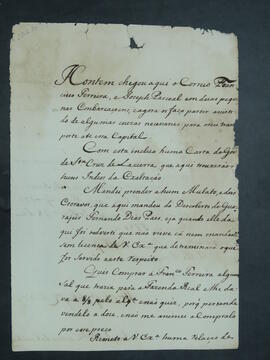 Hontem chegou aqui o Correio Fran
cisco Ferreira, e Joseph Pascoal em duas peque
nas Embarcaçoens, e agora os faço partir
de algumas couzas necessarias, para o seu trans
porte athe essa Capital.
Com esta incluo huma Carta do Gor
de Sta Cruz de Lacierra, que aqui trouxerão
huns Indios da Exaltação
Mandei prender a hum Mulato, e dous
Creoulos, que aqui mandou do Descoberto de
Fernando Dias Paes, e ja quando elle da
qui foi adverti que não viesse cá nem mandasse
sem licença de V. Exa que determinará o que
for Servido neste respeito
Quis Comprar a Franco Ferreira algum
Sal que trazia para a Fazenda Real e lhe da
va a pelo e não quiz, porq pertende
vendelo a dois, e não me animei a Compralo
por esse preço
Remeto a V. Exa huma relação de